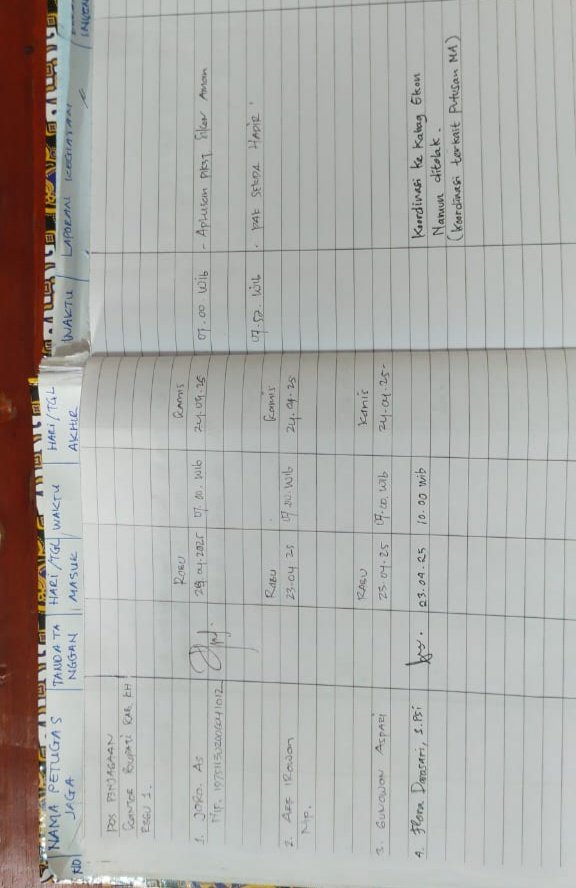 NO
NAMA PETUGAS
JAGA
TANDATA
NGGAN
HARI/TGL
MASUK
WAKTU
HARI/TGL
AKHIR
WAKTU
LAPORAN
POS PENJAGAAN
KANTOR BUPATI KAB
REGU 1.
1. JOKO. AS
Nip.
RABU
07.00. Wib
KAMIS
24.04.25
07.00 Wib - Aplusan Aman
07.52 Wib . PAK SEKDA HADIR
2. IRAWAN
Nip.
RABU
23.04.25
07.00. Wib
Kamis
24.04.25
3. GUNAWAN ASPARI
RABU
23.04.25
07.00 Wib
Kamis
24.04.25-
4. Flora Damasari, S.Psi
23.04.25
10.00 Wib
Koordinasi ke Kabag Ekon
Namun ditolak.
(Koordinasi terkait Putusan MA)